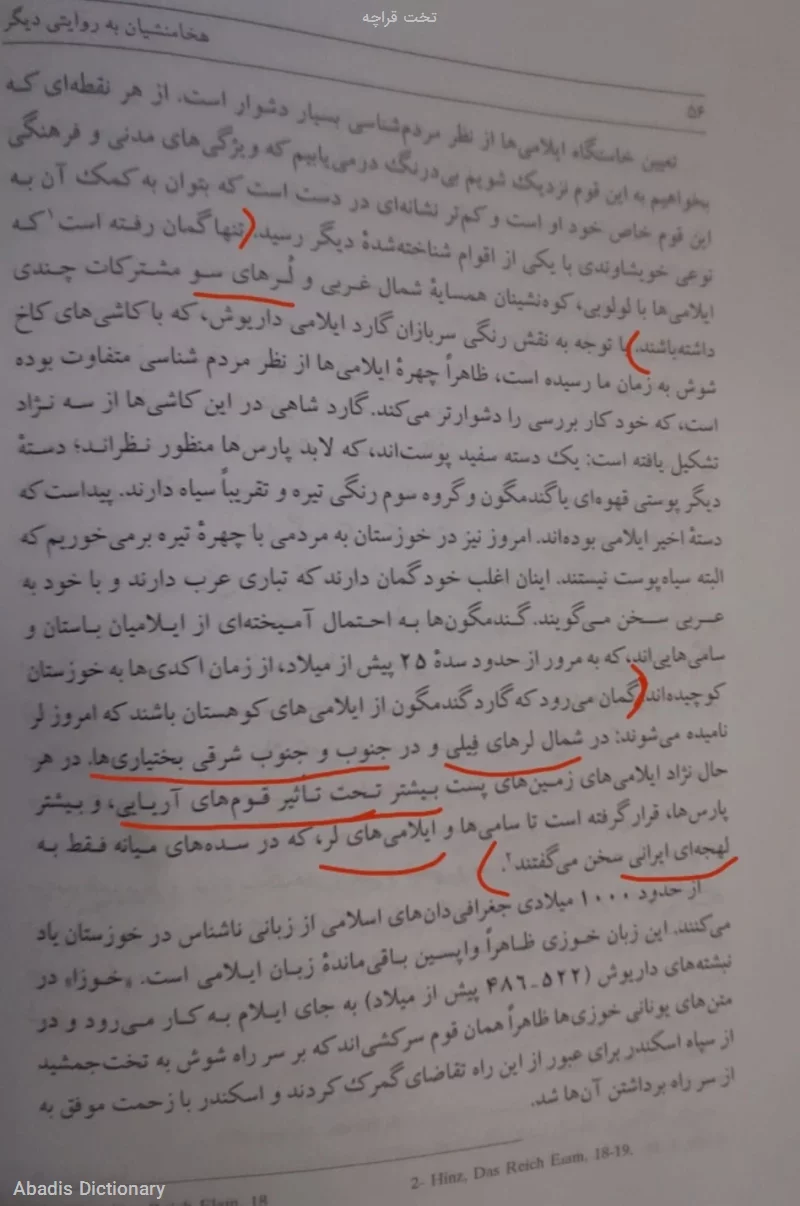 تخت قراچه
هخامنشیان به روایتی دیگر
۵۶
تعیین خاستگاه ایلامی‌ها از نظر مردم‌شناسی بسیار دشوار است. از هر نقطه‌ای که
بخواهیم به این قوم نزدیک شویم بی‌درنگ درمی‌یابیم که ویژگی‌های مدنی و فرهنگی
این قوم خاص خود او است و کم‌تر نشانه‌ای در دست است که بتوان به کمک آن به
نوعی خویشاوندی با یکی از اقوام شناخته‌شدهٔ دیگر رسید. تنها گمان رفته است۱ که
ایلامی‌ها با لولوبی، کوه‌نشینان همسایهٔ شمال غربی و لُرهای سو مشترکات چندی
داشته‌باشند. با توجه به نقش رنگی سربازان گارد ایلامی داریوش، که با کاشی‌های کاخ
شوش به زمان ما رسیده است، ظاهراً چهرهٔ ایلامی‌ها از نظر مردم شناسی متفاوت بوده
است، که خود کار بررسی را دشوارتر می‌کند. گارد شاهی در این کاشی‌ها از سه نژاد
تشکیل یافته است: یک دسته سفید پوست‌اند، که لابد پارس‌ها منظور نظراند؛ دستهٔ
دیگر پوستی قهوه‌ای یا گندمگون و گروه سوم رنگی تیره و تقریباً سیاه دارند. پیداست که
دستهٔ اخیر ایلامی بوده‌اند. امروز نیز در خوزستان به مردمی با چهرهٔ تیره برمی‌خوریم که
البته سیاه‌پوست نیستند. اینان اغلب خود گمان دارند که تباری عرب دارند و با خود به
عربی سخن می‌گویند. گندمگون‌ها به احتمال آمیخته‌ای از ایلامیان باستان و
سامی‌هایی‌اند، که به مرور از حدود سدهٔ ۲۵ پیش از میلاد، از زمان اکدی‌ها به خوزستان
کوچیده‌اند. گمان می‌رود که گارد گندمگون از ایلامی‌های کوهستان باشند که امروز لر
نامیده می‌شوند: در شمال لرهای فیلی و در جنوب و جنوب شرقی بختیاری‌ها. در هر
حال نژاد ایلامی‌های زمین‌های پست بیشتر تحت تأثیر قوم‌های آریایی، و بیشتر
پارس‌ها، قرار گرفته است تا سامی‌ها و ایلامی‌های لر، که در سده‌های میانه فقط به
لهجه‌ای ایرانی سخن می‌گفتند۲.
از حدود ۱۰۰۰ میلادی جغرافی‌دان‌های اسلامی از زبانی ناشناس در خوزستان یاد
می‌کنند. این زبان خوزی ظاهراً واپسین باقی‌ماندهٔ زبان ایلامی است. «خوزا» در
نبشته‌های داریوش (۵۲۲-۴۸۶ پیش از میلاد) به جای ایلام به کار می‌رود و در
متن‌های یونانی خوزی‌ها ظاهراً همان قوم سرکشی‌اند که بر سر راه شوش به تخت‌جمشید
از سپاه اسکندر برای عبور از این راه تقاضای گمرک کردند و اسکندر با زحمت موفق به
از سر راه برداشتن آن‌ها شد.
2- Hinz, Das Reich Elam, 18-19.
Reich Elam, 18
Abadis Dictionary